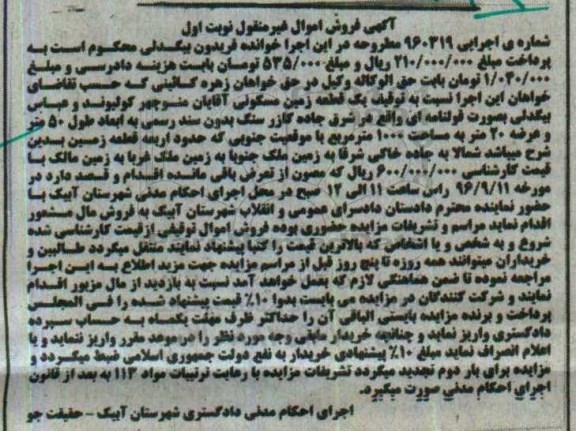 آگهی فروش اموال غیرمنقول نوبت اول
شماره ی اجرایی ۹۶۰۳۱۹ مطروحه در این اجرا خوانده فریدون بیگدلی محکوم است به
پرداخت مبلغ ۲۱۰/۰۰۰/۰۰۰ ریال و مبلغ ۵۳۵/۰۰۰ تومان بابت هزینه دادرسی و مبلغ
۱/۰۳۰/۰۰۰ تومان بابت حق الوکاله وکیل در حق خواهان زهره کائینی که حسب تقاضای
خواهان این اجرا نسبت به توقیف یک قطعه زمین مسکونی آقایان منوچهر کولیوند و عباس
بیگدلی بصورت قولنامه ای واقع در شرق جاده کازر سنگ بدون سند رسمی به ابعاد طول ۵۰ متر
و عرضه ۲۰ متر به مساحت ۱۰۰۰ مترمربع با موقعیت جنوبی که حدود اربعه قطعه زمین بدین
شرح میباشد شمالا به جاده خاکی شرقا به زمین ملک جنوبا به زمین ملک غربا به زمین مالک با
قیمت کارشناسی ۶۰۰/۰۰۰/۰۰۰ ریال که مصون از تعرض باقی مانده اقدام و قصد دارد در
مورخه ۹۶/۹/۱۱ راس ساعت ۱۱ الی ۱۲ صبح در محل اجرای احکام مدنی شهرستان آبیک با
حضور نماینده محترم دادستان دادسرای عمومی و انقلاب شهرستان آبیک به فروش مال مسنفور
اقدام نماید مراسم و تشریفات مزایده حضوری بوده فروش اموال توقیفی از قیمت کارشناسی شده
شروع و به شخص و یا اشخاصی که بالاترین قیمت را کتبا پیشنهاد نمایند منتقل میگردد طالبین و
خریداران میتوانند همه روزه تا پنج روز قبل از مراسم مزایده جهت مزید اطلاع به این اجرا
مراجعه نموده تا ضمن هماهنگی لازم که بعمل خواهد آمد نسبت به بازدید از مال مزبور اقدام
نمایند و شرکت کنندگان در مزایده می بایست بدوا ۱۰٪ قیمت پیشنهاد شده را فی المجلس
پرداخت و برنده مزایده بایستی الباقی آن را حداکثر ظرف مهلت یکماه به حساب سپرده
دادگستری واریز نماید و چنانچه خریدار مابقی وجه مورد نظر را در موعد مقرر واریز ننماید و یا
اعلام انصراف نماید مبلغ ۱۰٪ پیشنهادی خریدار به نفع دولت جمهوری اسلامی ضبط میگردد و
مزایده برای بار دوم تجدید میگردد تشریفات مزایده با رعایت ترتیبات مواد ۱۱۳ به بعد از قانون
اجرای احکام مدنی صورت میگیرد.
اجرای احکام مدنی دادگستری شهرستان آبیک - حقیقت جو